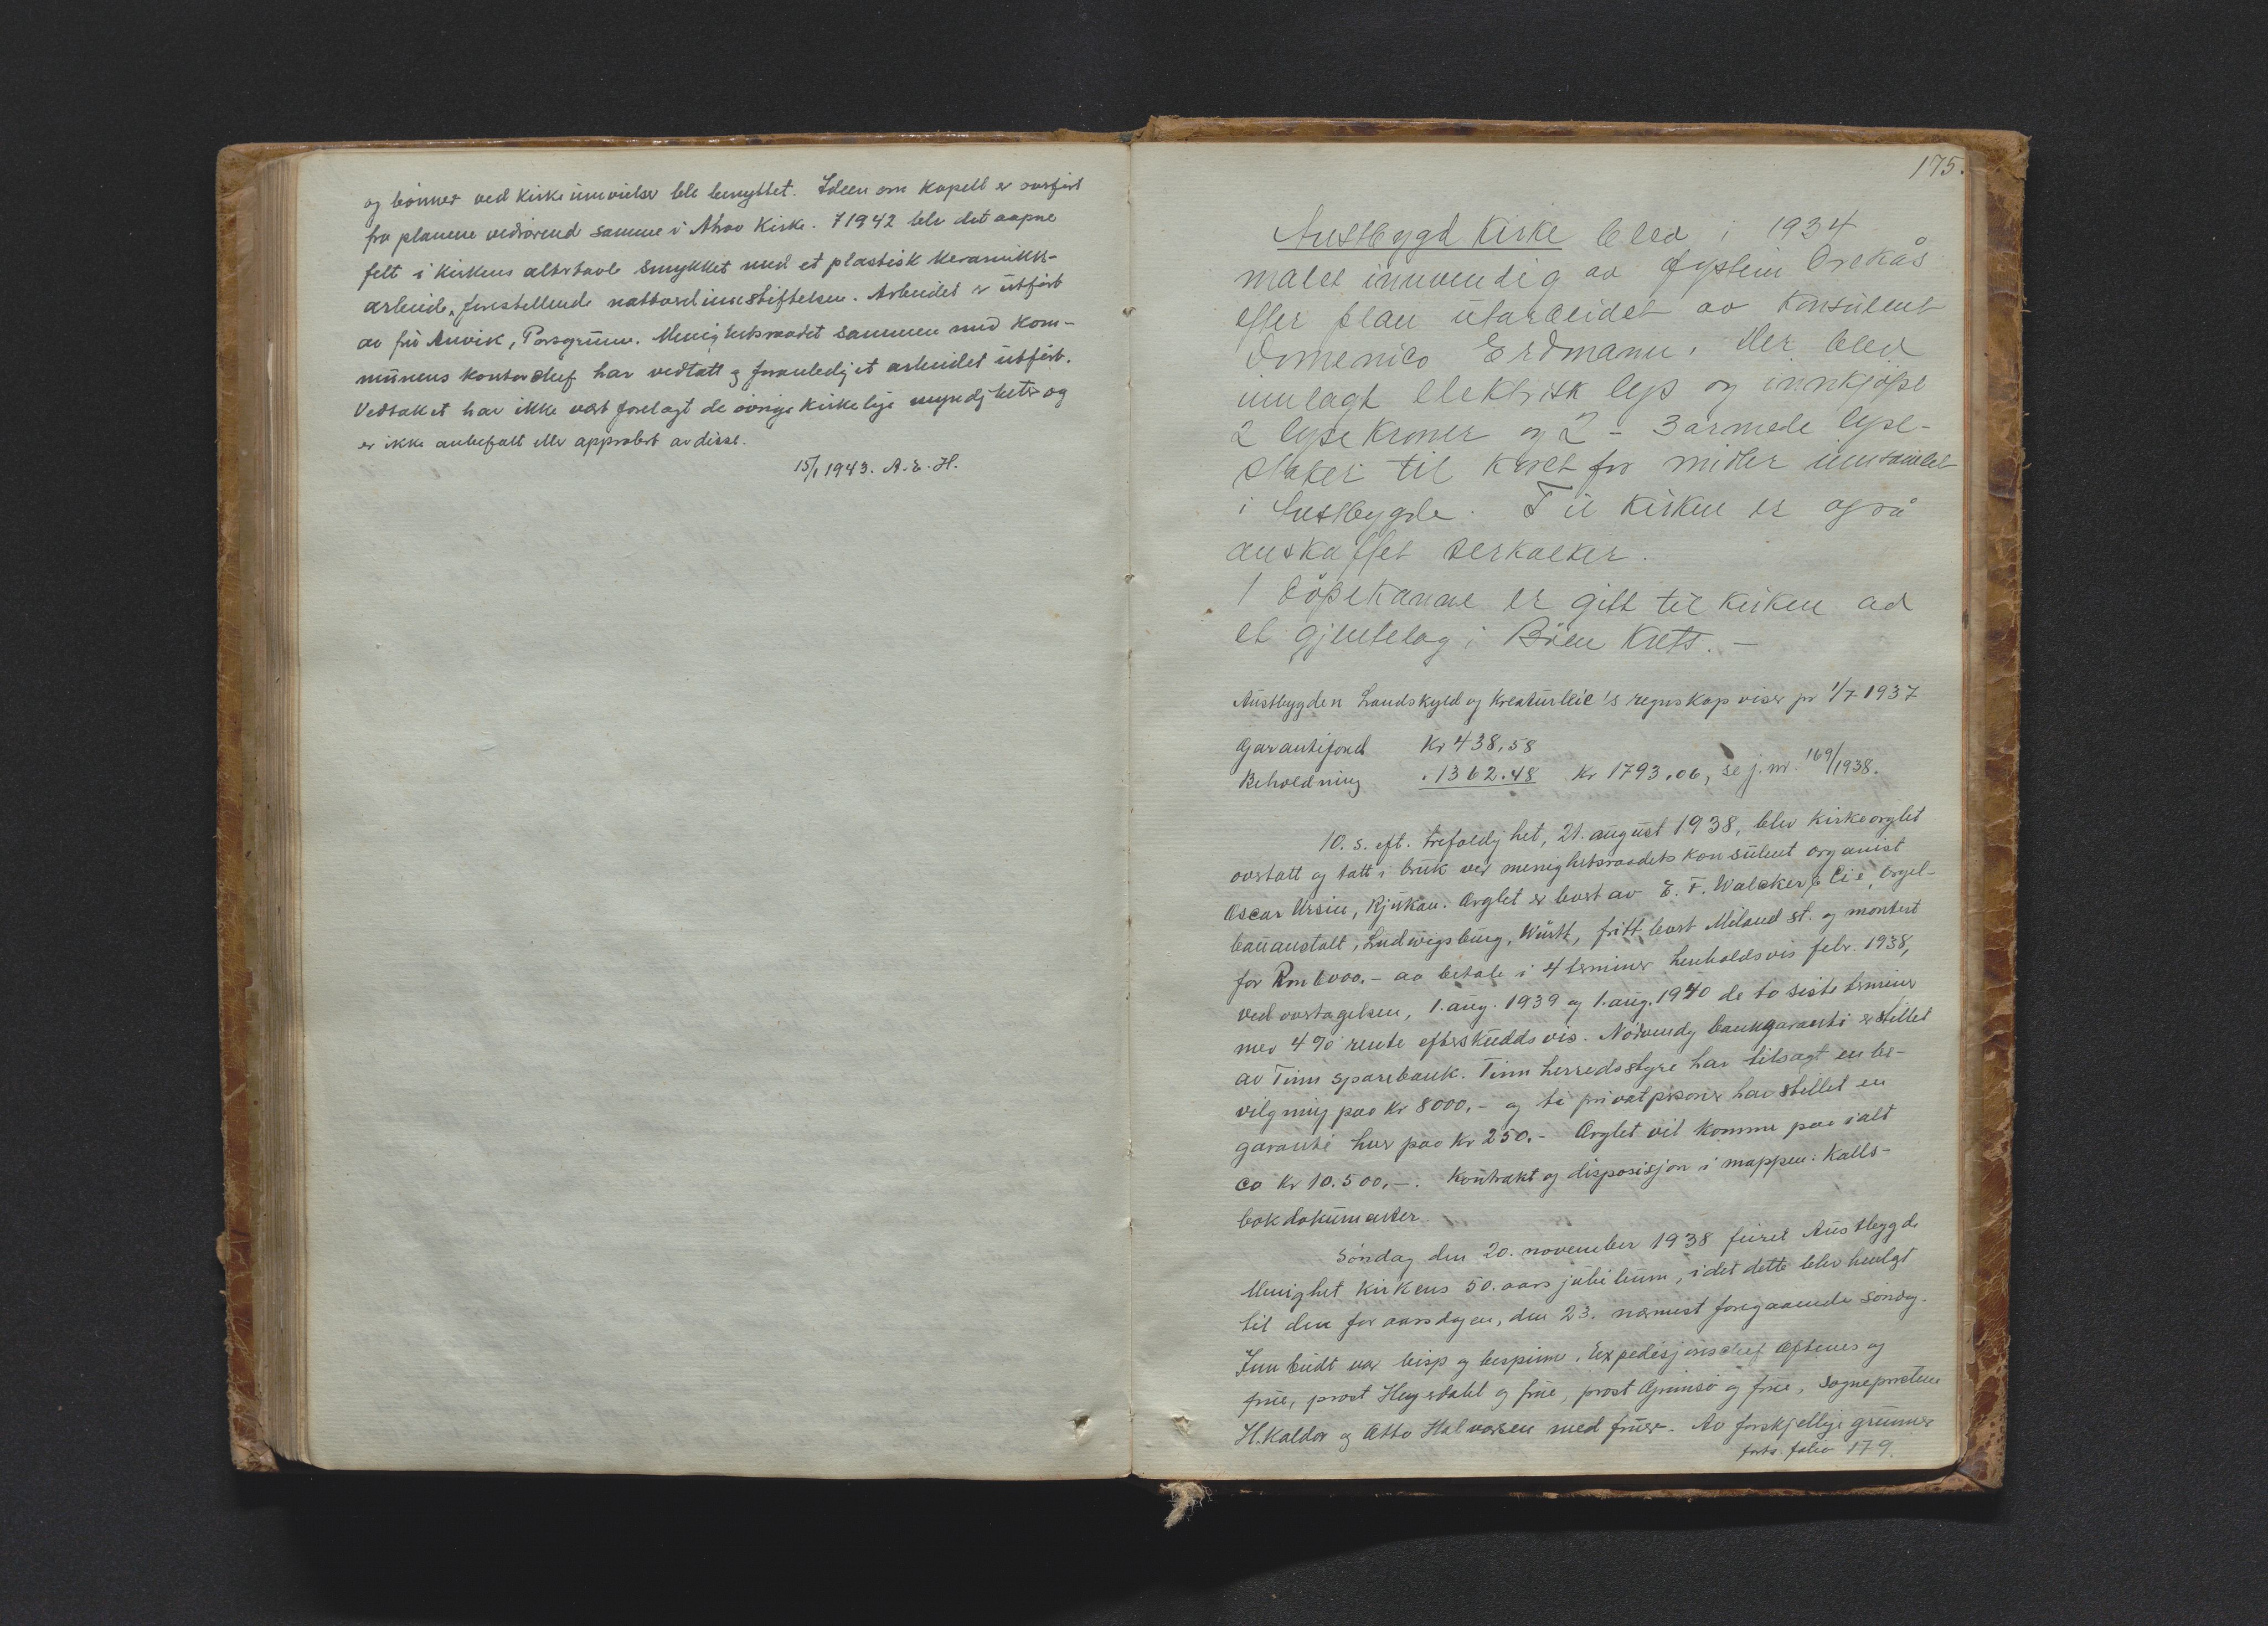 og bønner ved kirkeinnvielser ble benyttet. Ideen om kapell er overført
fra planene vedrørend samme i Atraa Kirke. I 1942 blev det aapne
felt i kirkens altertavle smykket med et plastisk keramikk-
arbeide, forestillende nattverdinnstiftelsen. Arbeidet er utført
av frü Anvik, Porsgrunn. Menighetsraadet sammen med kom-
munens kontorchef har vedtatt og foranlediget arbeidet utført.
Vedtaket har ikke vært forelagt de øvrige kirkelige myndigheter og
er ikke anbefalt eller approbert av disse.
15/1 1943. A. E. H.
175.
Austbygd Kirke blev i 1934
malet innvendig av Øystein Orekås
efter plan utarbeidet av Konsulent
Domenico Erdmann. Der blev
innlagt elektrisk lys og innkjøpt
2 lysekroner og 2 - 3 armede lyse-
staker til koret for midler innsamlet
i Austbygde. Til kirken er også
anskaffet serkalker.
1 Døpekanne er gitt til kirken av
et gjentelag i Bøen Krets. -
Austbygden Landskyld og Kreaturleie's regnskap viser pr 1/7 1937
Garantifond Kr 438,58
Beholdning " 1362.48 Kr 1793.06, se j. nr 169/1938.
10. s. eft. trefoldighet, 21. august 1938, blev kirkeorglet
overtatt og tatt i bruk ved menighetsraadets konsulent organist
Oscar Ursin, Rjukan. Orglet er levert av E. F. Walcker & Cie, Orgel-
bauanstalt, Ludwigsburg, Württ, fritt levert Miland st. og montert
for Rm 6000.- aa betale i 4 terminer henholdsvis febr. 1938,
ved overtagelsen, 1. aug. 1939 og 1. aug. 1940 de to siste terminer
med 4 % rente efterskuddsvis. Nødvendig bankgaranti er stillet
av Tinn sparebank. Tinn herredsstyre har tilsagt en be-
vilgning paa Kr 8000.- og ti privatpersoner har stillet en
garanti hver paa Kr 250.- Orglet vil komme paa ialt
ca Kr 10.500,-. Kontrakt og disposisjon i mappen: Kalls-
bokdokumenter.
Søndag den 20. november 1938 feiret Austbygde
Menighet kirkens 50. aars jubileum, idet dette blev henlagt
til den for aarsdagen, den 23. nærmest foregaaende søndag.
Innbudt var bisp og bispinne, Expedisjonschef Oftenes og
frue, prost Hegerdahl og frue, prost Grimsø og frue, sogneprestene
H. Kaldor og Otto Halvorsen med fruer. Av forskjellige grunner
forts. folio 179.